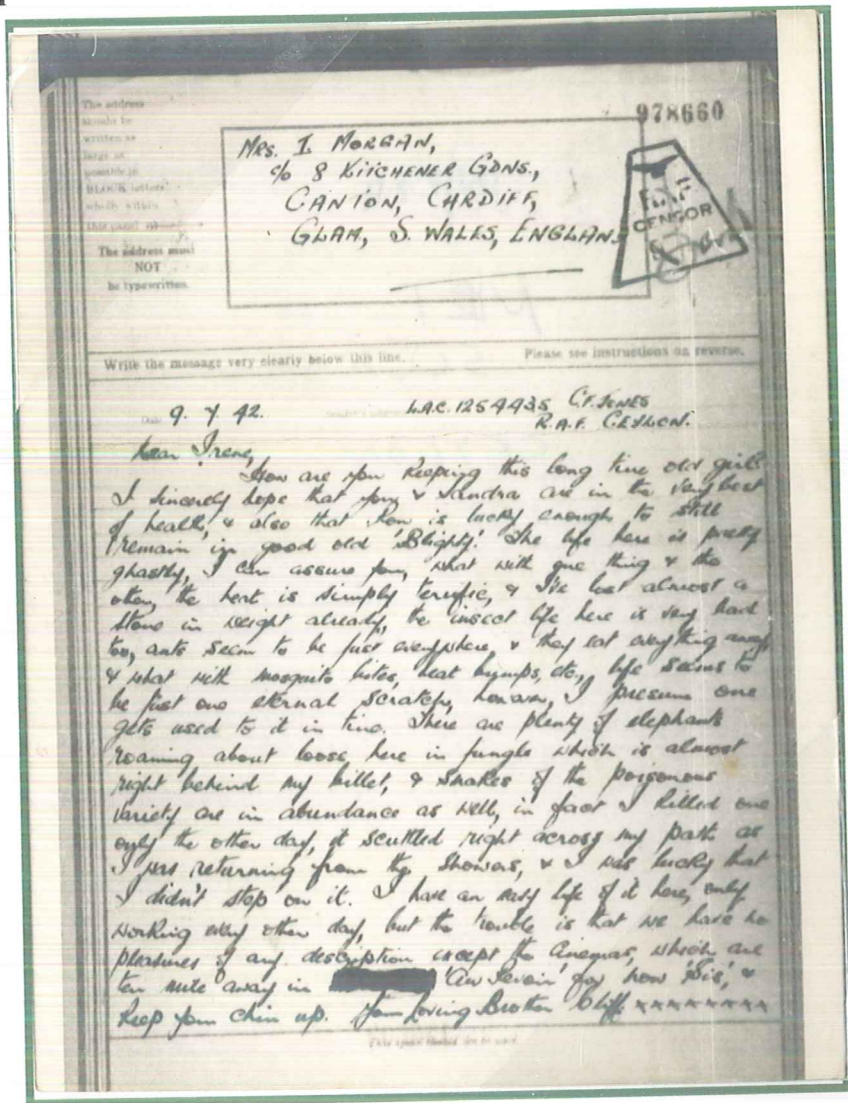 The address
should be
written as
large as
possible in
BLOCK letters
wholly within
this panel
The address must
NOT
be typewritten.
978660
MRS. I. MORGAN,
c/o 8 KITCHENER GDNS.,
CANTON, CARDIFF,
GLAM, S. WALES, ENGLAND
R.A.F
CENSOR
Write the message very clearly below this line.
Please see instructions on reverse.
Date 9. 7. 42.
L.A.C. 1254435 C.F. JONES
R.A.F. CEYLON.
Dear Irene,
How are you keeping this long time old girl?
I sincerely hope that you & Sandra are in the very best
of health, & also that Ron is lucky enough to still
remain in good old 'Blighty'. The life here is pretty
ghastly, I can assure you, what with one thing & the
other, the heat is simply terrific, & I've lost almost a
stone in weight already, the insect life here is very hard
too, ants seem to be just everywhere, & they eat everything away,
& what with mosquito bites, heat bumps, etc, life seems to
be just one eternal scratch, however, I presume one
gets used to it in time. There are plenty of elephants
roaming about loose here in jungle which is almost
right behind my billet, & snakes of the poisonous
variety are in abundance as well, in fact I killed one
only the other day, it scuttled right across my path as
I was returning from the showers, & I was lucky that
I didn't step on it. I have an easy life of it here, only
working every other day, but the trouble is that we have no
pleasures of any description except the cinemas, which are
ten mile away in 'Au Revoir' for now 'Sis', &
keep your chin up. Your Loving Brother Cliff. xxxxxxxxx